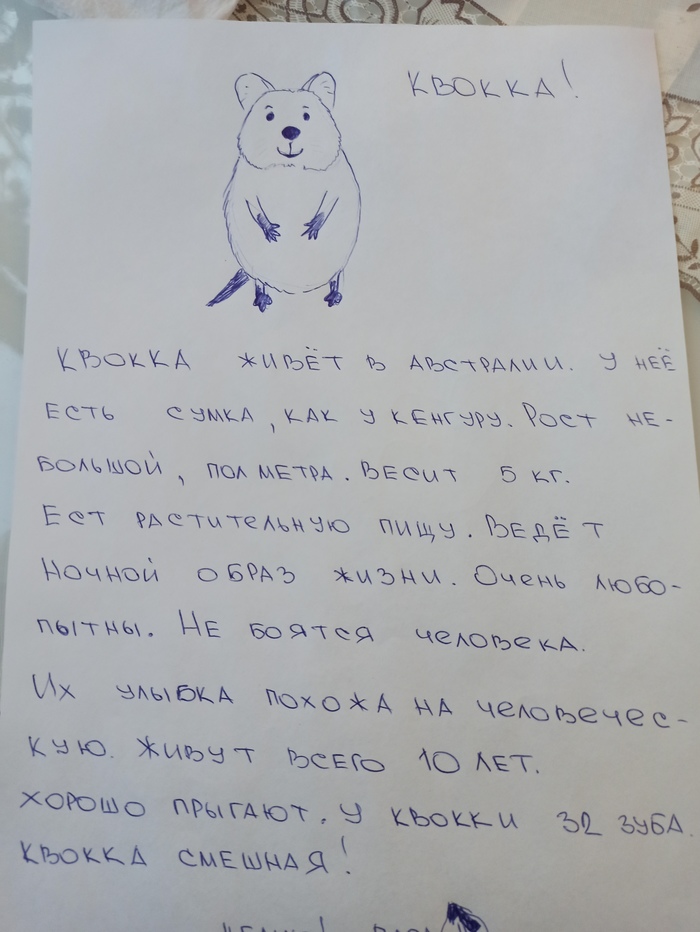 КВОККА!
КВОККА ЖИВЁТ В АВСТРАЛИИ. У НЕЁ
ЕСТЬ СУМКА, КАК У КЕНГУРУ. РОСТ НЕ-
БОЛЬШОЙ, ПОЛ МЕТРА. ВЕСИТ 5 КГ.
ЕСТ РАСТИТЕЛЬНУЮ ПИЩУ. ВЕДЁТ
НОЧНОЙ ОБРАЗ ЖИЗНИ. ОЧЕНЬ ЛЮБО-
ПЫТНЫ. НЕ БОЯТСЯ ЧЕЛОВЕКА.
ИХ УЛЫБКА ПОХОЖА НА ЧЕЛОВЕЧЕС-
КУЮ. ЖИВУТ ВСЕГО 10 ЛЕТ.
ХОРОШО ПРЫГАЮТ. У КВОККИ 32 ЗУБА.
КВОККА СМЕШНАЯ!